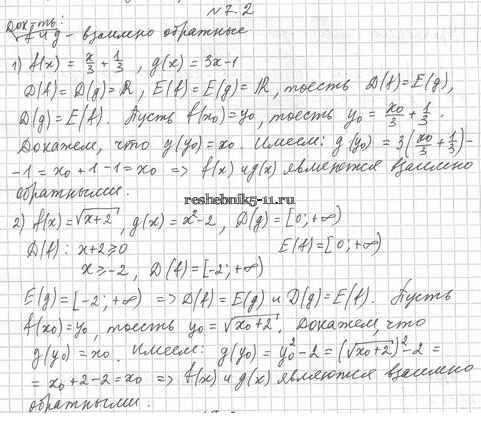 №7.2
Док-ть:
f и g - взаимно обратные
1) f(x) = x/3 + 1/3, g(x) = 3x-1
D(f) = D(g) = R, E(f) = E(g) = R, тоесть D(f) = E(g),
D(g) = E(f). Пусть f(x₀) = y₀, тоесть y₀ = x₀/3 + 1/3.
Докажем, что g(y₀) = x₀. Имеем: g(y₀) = 3(x₀/3 + 1/3) -
-1 = x₀ + 1 - 1 = x₀ => f(x) и g(x) являются взаимно
обратными.
reshebnik5-11.ru
2) f(x) = √(x+2), g(x) = x² - 2, D(g) = [0; +∞)
D(f): x+2 ≥ 0 E(f) = [0; +∞)
x ≥ -2, D(f) = [-2; +∞)
E(g) = [-2; +∞) => D(f) = E(g) и D(g) = E(f). Пусть
f(x₀) = y₀, тоесть y₀ = √(x₀+2). Докажем, что
g(y₀) = x₀. Имеем: g(y₀) = y₀² - 2 = (√(x₀+2))² - 2 =
= x₀ + 2 - 2 = x₀ => f(x) и g(x) являются взаимно
обратными.